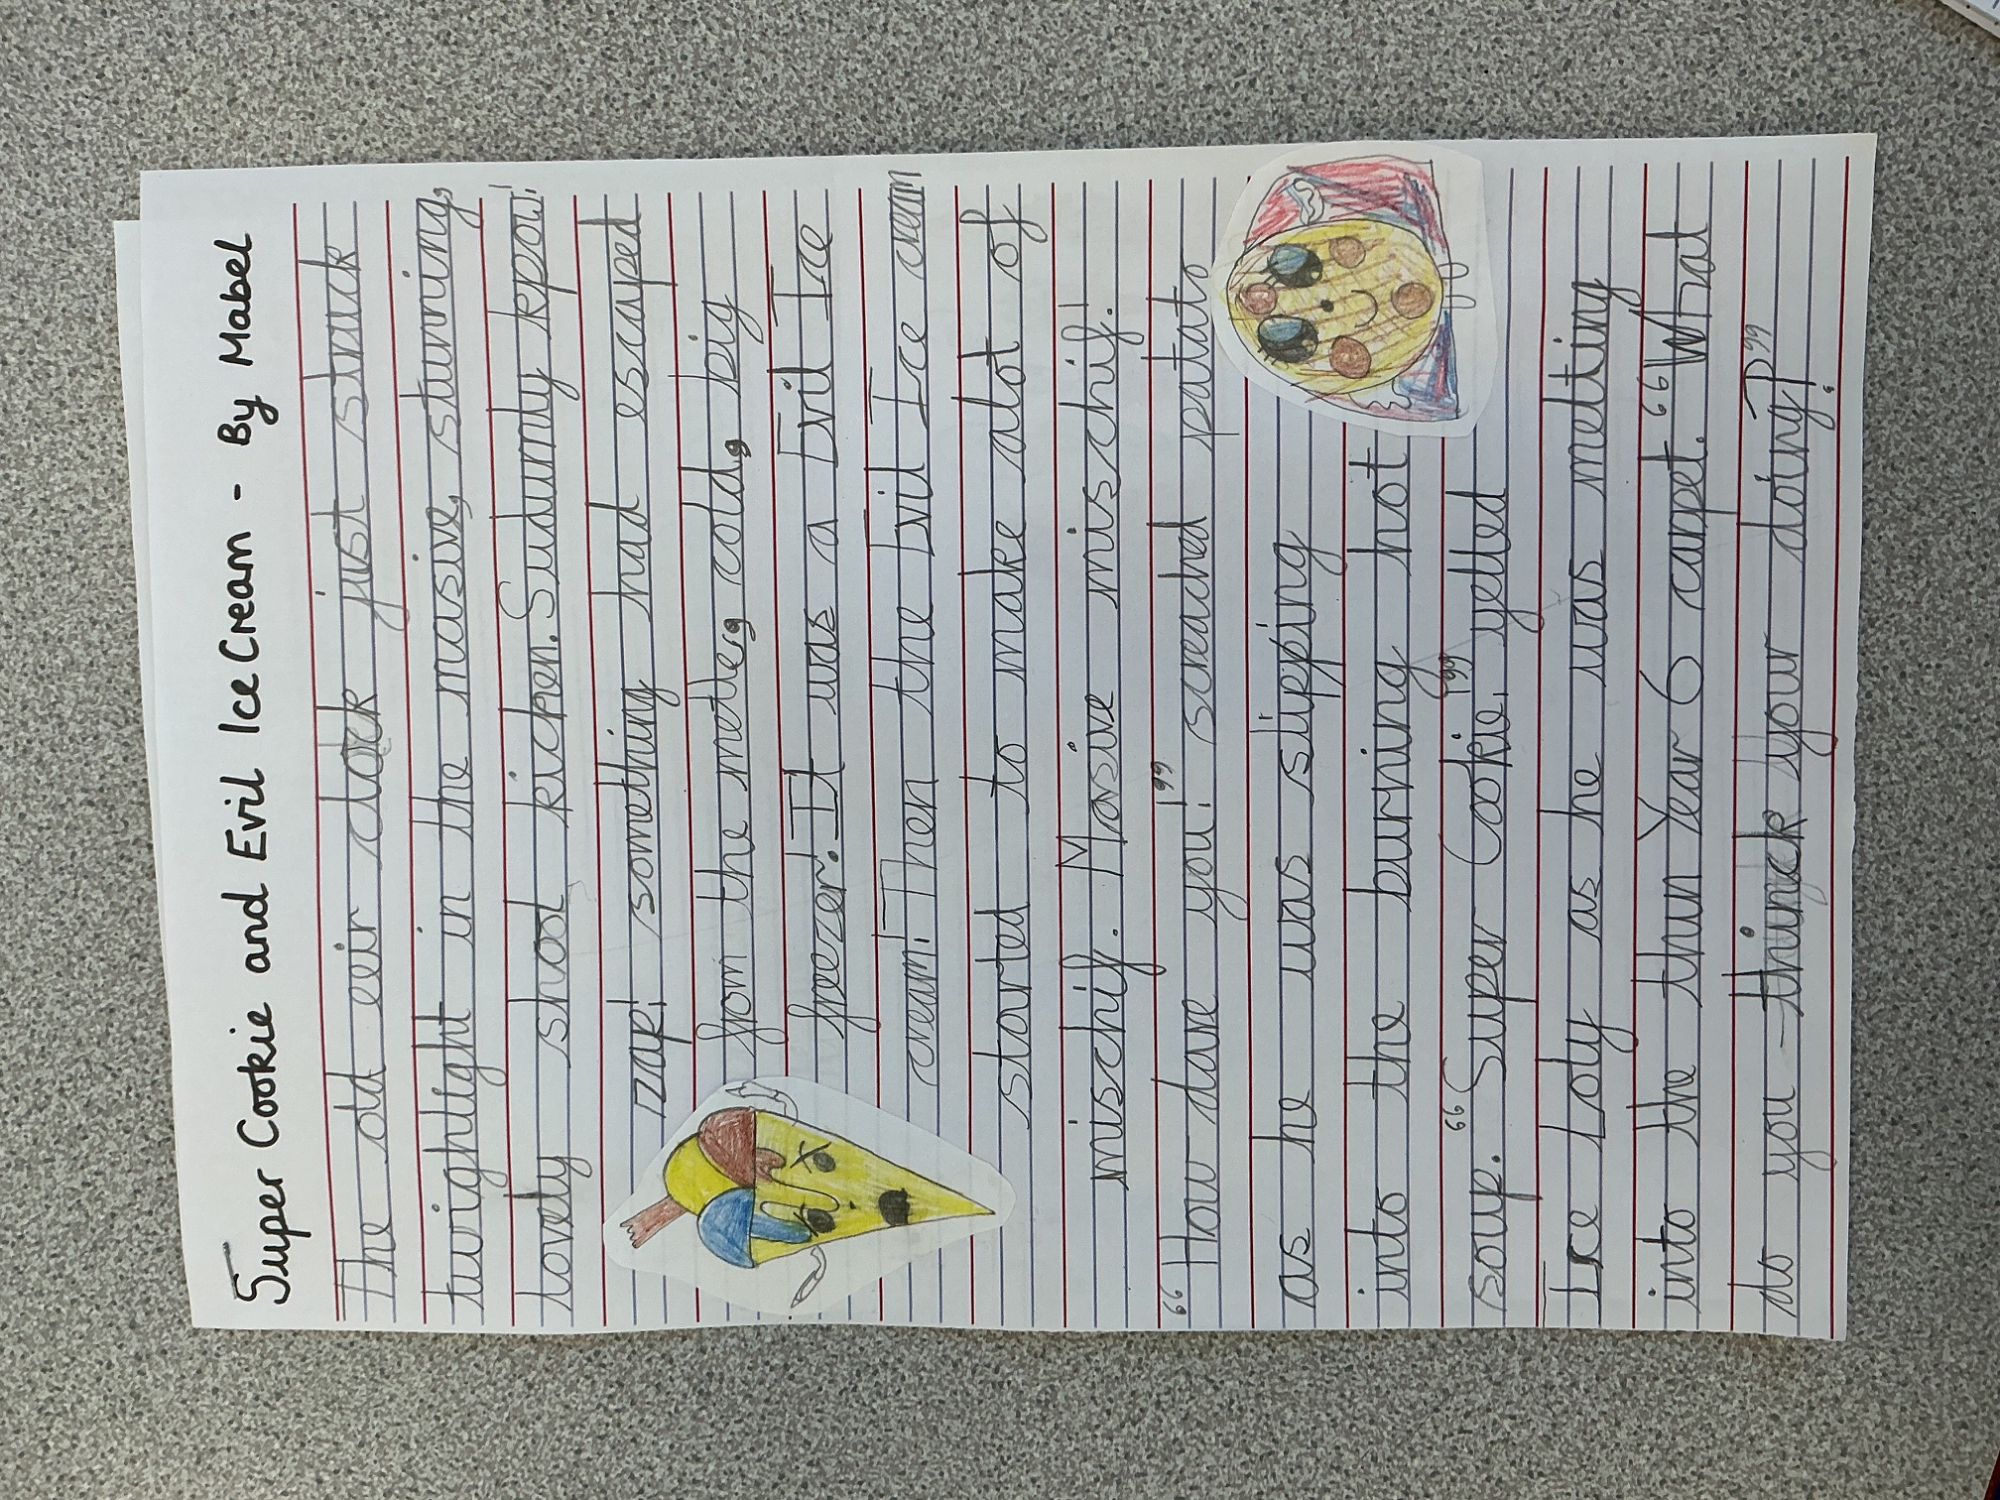 Super Cookie and Evil Ice Cream - By Mabel
The old eeir clock just struck
twighlight in the masive, stunning,
lovely shool kichen. Sudunndy kpow!
zap! something had escaped
from the metle, cold, big
freezer! It was a Evil Ice
cream! Then the Evil Ice cream
started to make alot of
mischif. Masive mischif!
“How dare you!” screached patato
as he was slipping
into the burning hot
soup. “Super Cookie,” yelled
Ice Loly as he was melting
into the thun Year 6 carpet. “What
do you think your doing?”